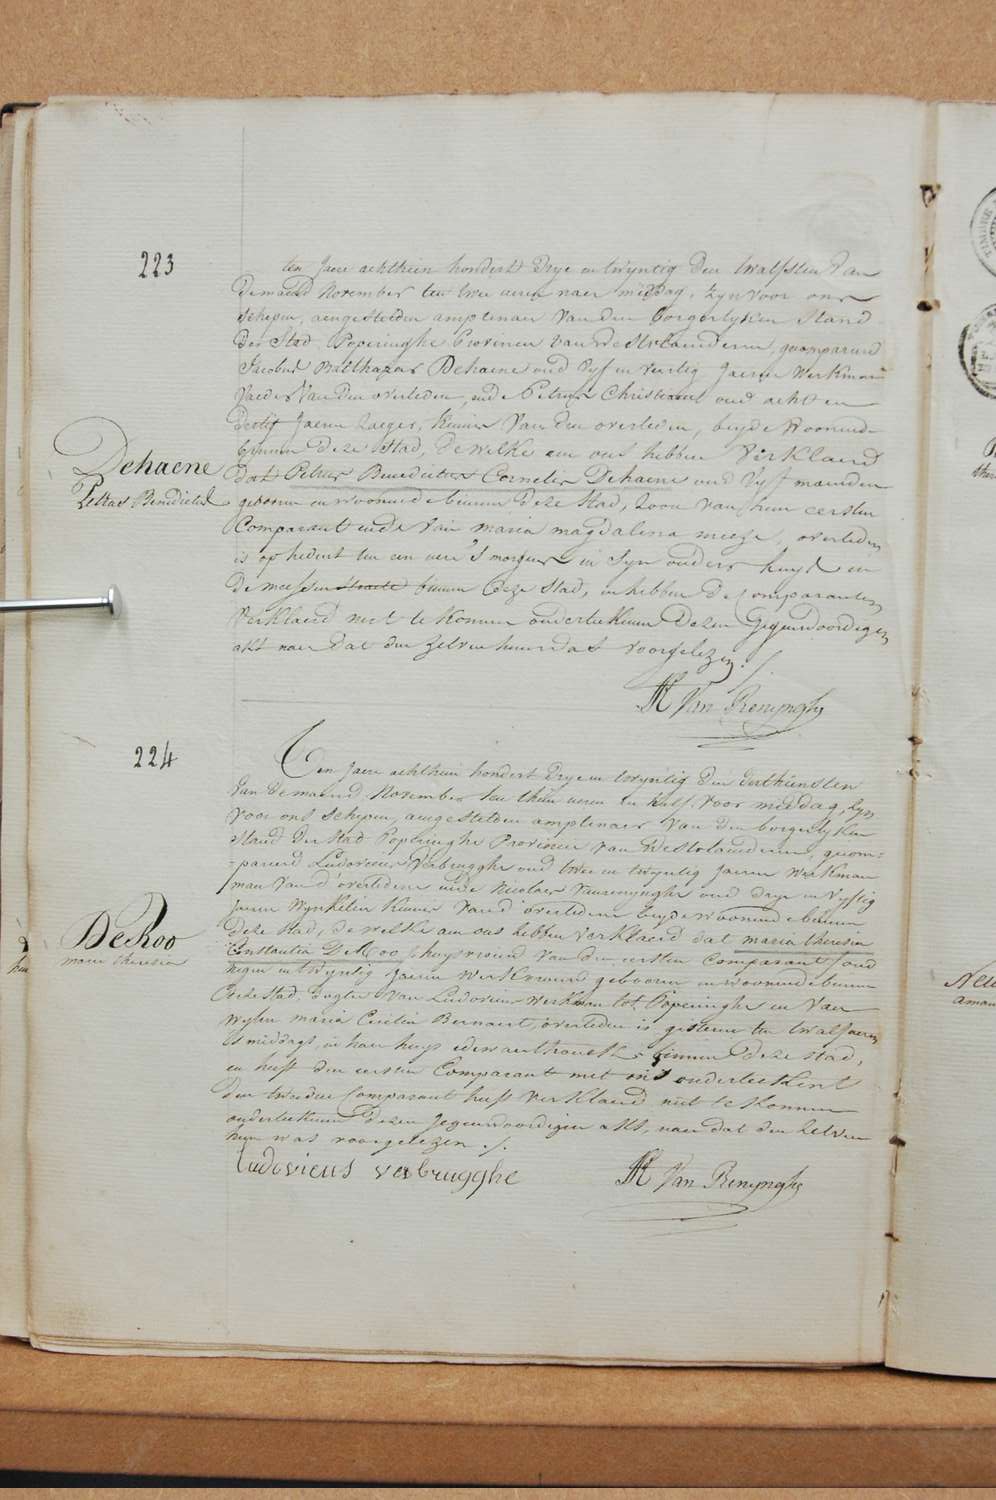 223
ten Jaere achthien hondert Drye en twyntig Den twalfsten Van
De maend November ten twee ueren naer middag, Zyn voor ons
schepen, aengestelden amptenaer van den borgerlyken Stand
Der Stad Poperinghe Provincie van Westvlaenderen, gecompareerd
Jacobus Balthazar Dehaene oud Vyf en veertig Jaeren werkman
Vaeder van den overleden, ende Petrus Christiaens oud acht en
Dertig Jaeren Zaeger, kennis van den overleden, beyde woonende
binnen Deze Stad, De welke aen ons hebben Verklaerd
Dehaene
Petrus Benedictus
Dat Petrus Benedictus Cornelis Dehaene oud Vyf maenden
geboren en woonende binnen Deze Stad, Zoon van hun eersten
Comparant ende van maria magdalena meeze, overleden
is op hedent ten een uer 's morgens in Syn ouders huys in
De meessenstraete binnen Deze Stad, en hebben De Comparanten
Verklaerd niet te konnen onderteekenen Dezen Gegenwoordigen
akt naer dat den zelven hun was voorgelezen ./.
Van Renynghe
224
Ten Jaere achthien hondert Drye en twyntig Den derthiensten
Van De maend November ten thien ueren en half voor middag, Zyn
voor ons schepen, aengestelden amptenaer van den borgerlyken
stand Der stad Poperinghe Provincie van Westvlaenderen, gecom-
-pareerd Ludovicus Verbrugghe oud twee en twyntig Jaeren werkman
man van d'overledene ende Nicolaes Vanrenynghe oud drye en vyftig
Jaeren Wynkelier kennis van d'overledene beyde woonende binnen
De Roo
marie theresia
Deze Stad, De welke aen ons hebben verklaerd dat maria theresia
Constantia De Roo, huysvrouw van den eersten Comparant, oud
negen en twyntig Jaeren werkvrouw geboren en woonende binnen
Deze Stad, dogter van Ludovicus werkman tot Poperinghe en van
wylen maria Cecilia Bernaert, overleden is gisteren ten twalf ueren
's middags, in haer huys binnen Deze stad,
en heeft den eersten Comparant met ons onderteekent
Den tweeden Comparant heeft Verklaerd niet te konnen
onderteekenen Dezen Jegenwoordigen akt, naer dat den Zelven
hun was voorgelezen ./.
Ludovicus verbrugghe
Van Renynghe
TIMBRE